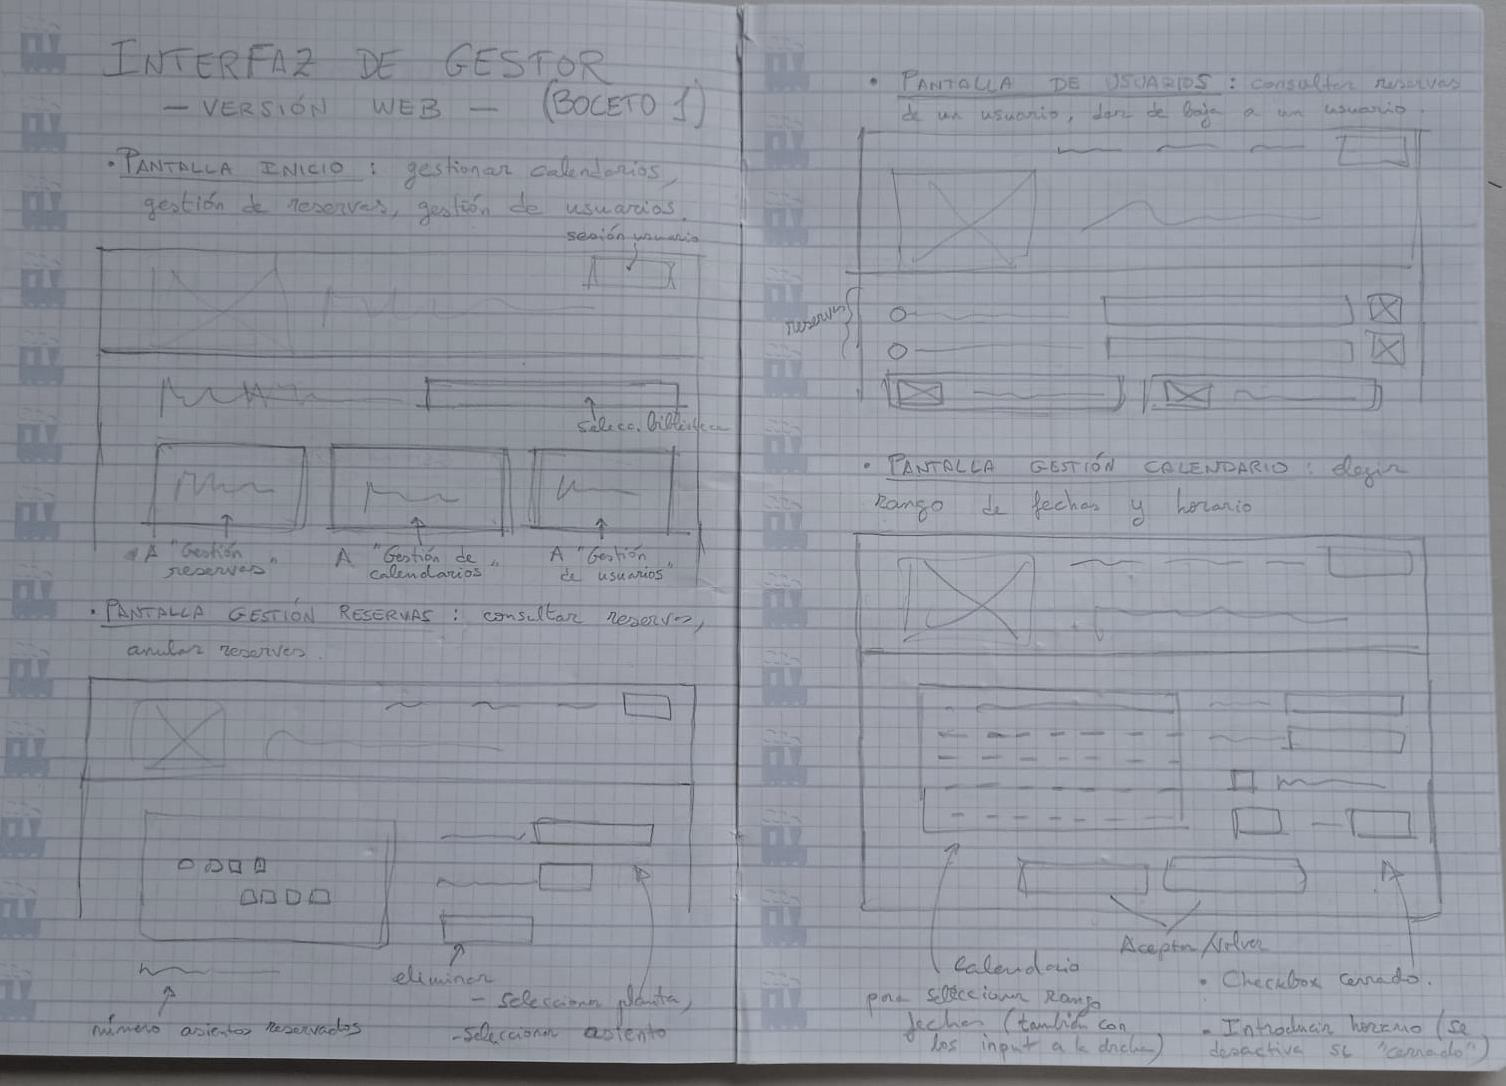 INTERFAZ DE GESTOR
- VERSIÓN WEB - (BOCETO 1)
• PANTALLA INICIO : gestionar calendarios,
gestión de reservas, gestión de usuarios.
sesión usuario
selecc. biblioteca
A "Gestión
reservas"
A "Gestión de
calendarios"
A "Gestión
de usuarios"
• PANTALLA GESTIÓN RESERVAS : consultar reservas,
anular reservas.
eliminar
- Seleccionar planta,
- Seleccionar asiento
número asientos reservados
• PANTALLA DE USUARIOS : consultar reservas
de un usuario, dar de baja a un usuario.
reservas
• PANTALLA GESTIÓN CALENDARIO : elegir
Rango de fechas y horario
Aceptar/Volver
Calendario
para seleccionar Rango
fechas (también con
los input a la drcha)
• Checkbox cerrado.
• Introducir horario (se
desactiva si "cerrado")